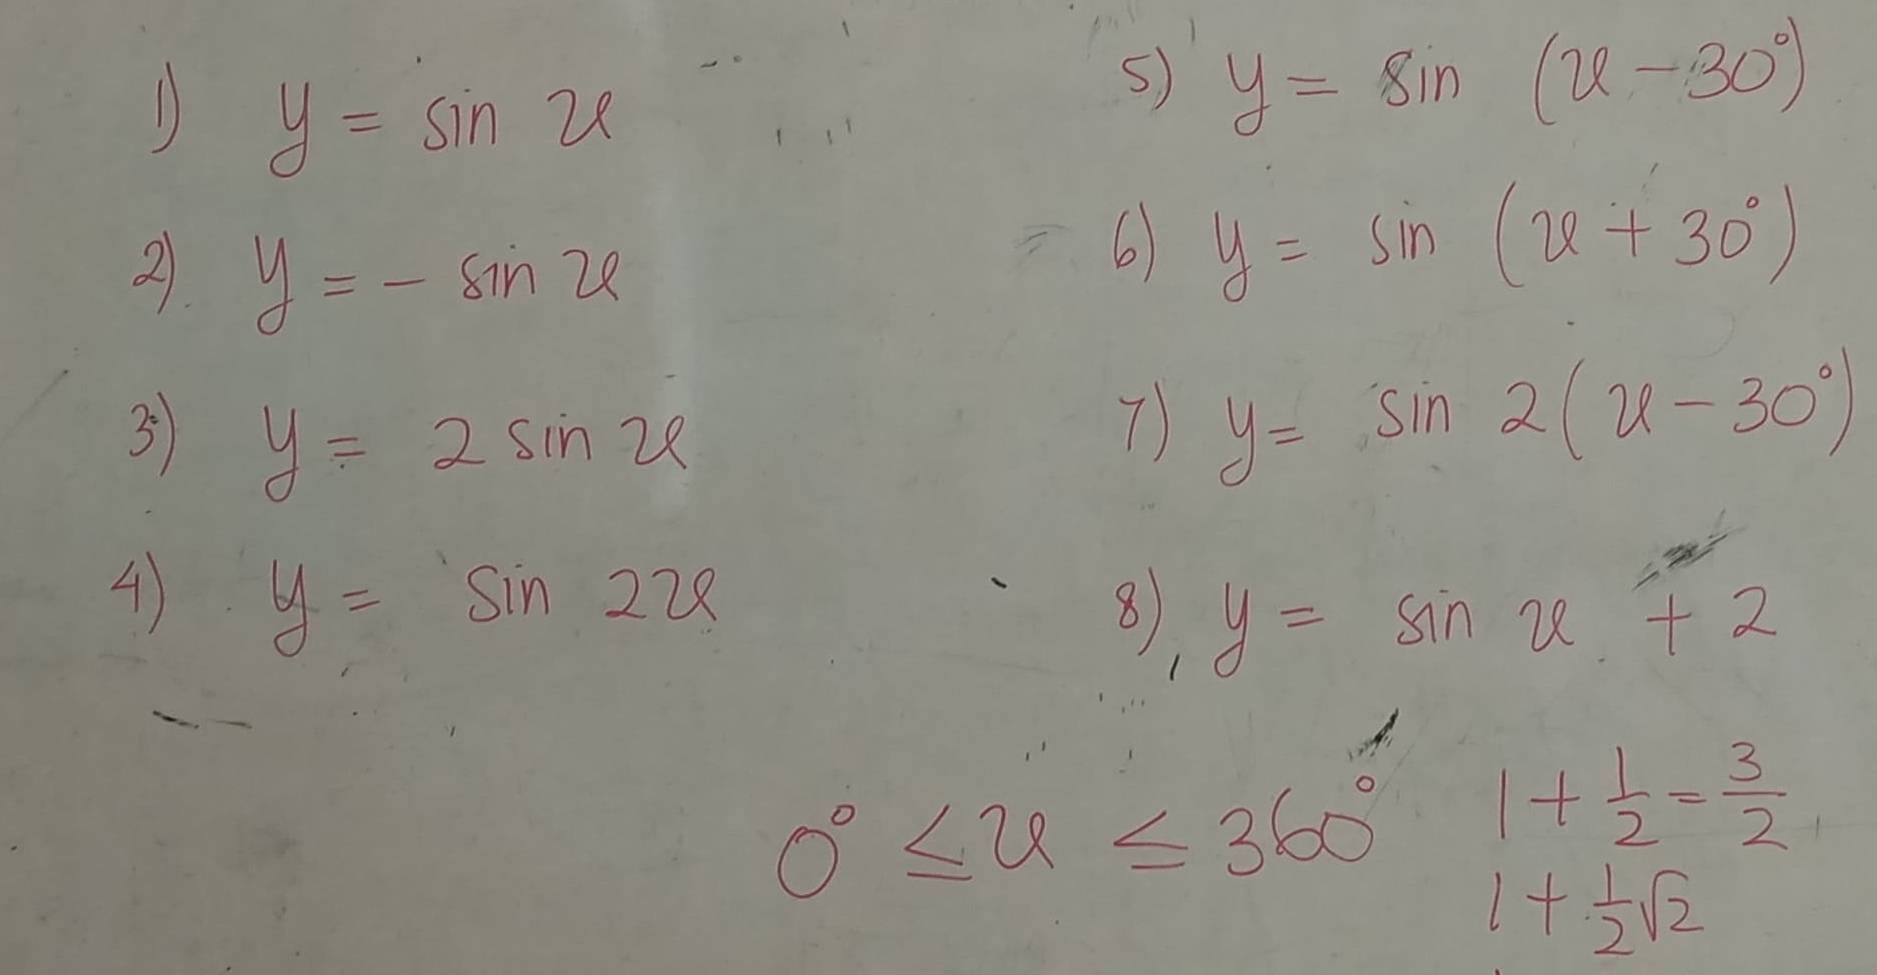 1) y = sin x
2) y = - sin x
3) y = 2 sin x
4) y = sin 2x
5) y = sin (x - 30°)
6) y = sin (x + 30°)
7) y = sin 2(x - 30°)
8) y = sin x + 2
0° ≤ x ≤ 360°
1 + 1/2 = 3/2
1 + 1/2 √2